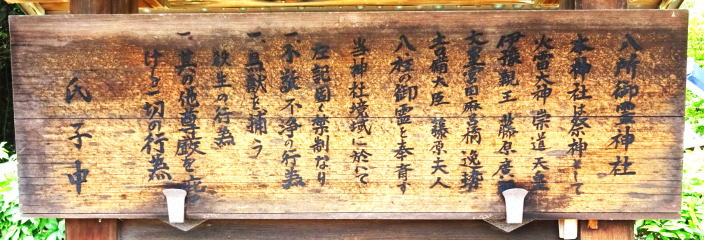 八所御霊神社
本神社は祭神として
火雷大神 崇道天皇
伊豫親王 藤原廣
大夫宮田麻呂 橘逸勢
吉備大臣 藤原夫人
八柱の御霊を奉斎す
当神社境域に於いて
左記固く禁制なり
一、不敬不浄の行為
一、鳥獣を捕う
殺生の行為
一、其の他尊厳を
ける一切の行為
氏子中